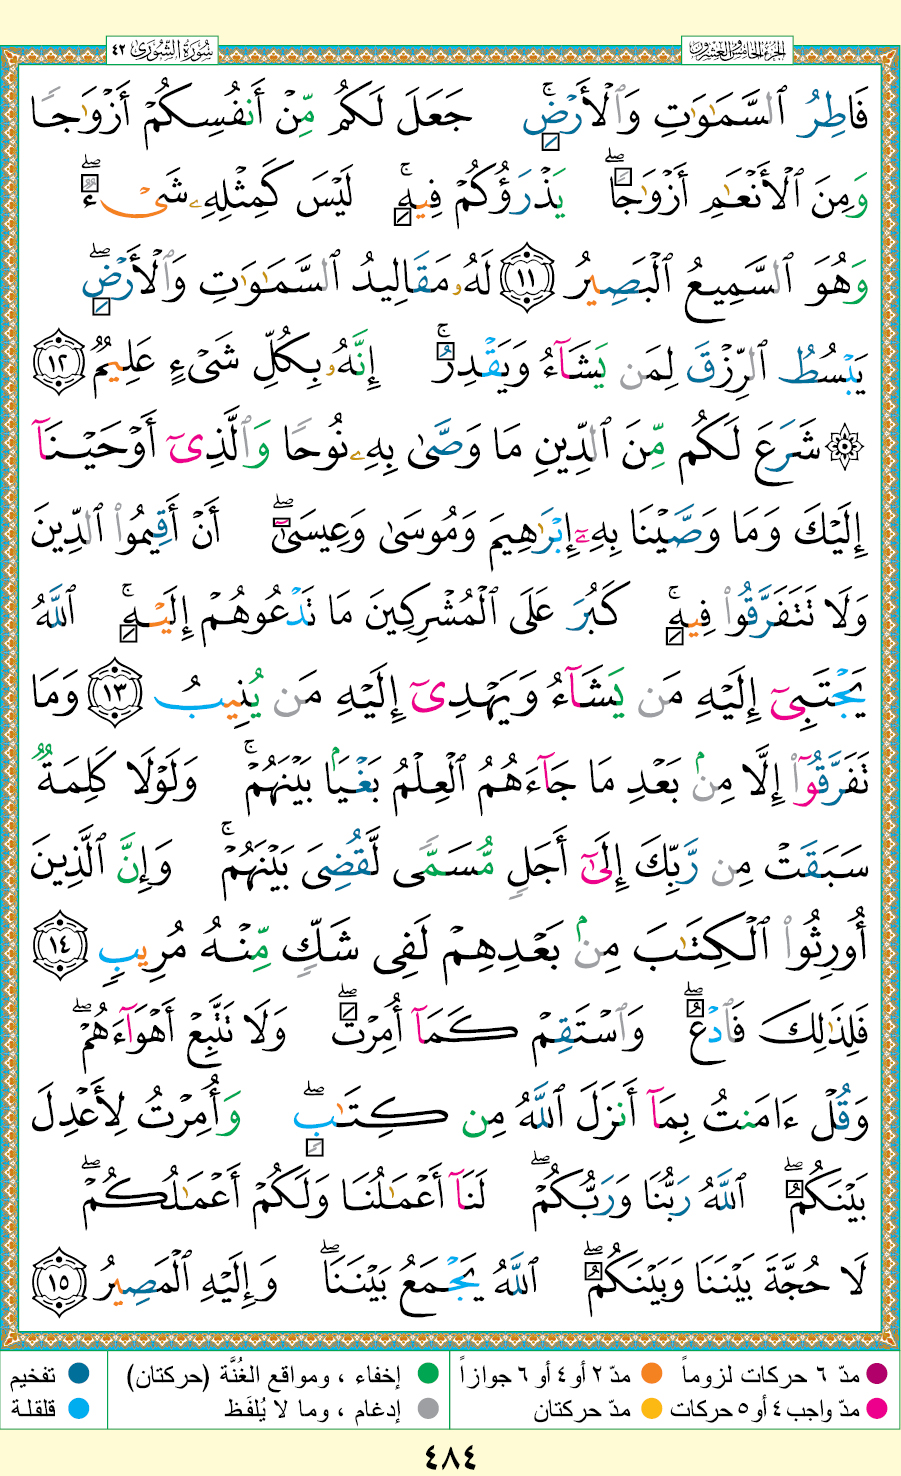 سُورَةُ الشُّورَىٰ ٤٢
الجُزْءُ الخَامِسُ وَالعِشْرُونَ
فَاطِرُ ٱلسَّمَٰوَٰتِ وَٱلْأَرْضِۚ جَعَلَ لَكُم مِّنْ أَنفُسِكُمْ أَزْوَٰجًا
وَمِنَ ٱلْأَنْعَٰمِ أَزْوَٰجًاۖ يَذْرَؤُكُمْ فِيهِۚ لَيْسَ كَمِثْلِهِۦ شَىْءٌۖ
وَهُوَ ٱلسَّمِيعُ ٱلْبَصِيرُ ١١ لَهُۥ مَقَالِيدُ ٱلسَّمَٰوَٰتِ وَٱلْأَرْضِۖ
يَبْسُطُ ٱلرِّزْقَ لِمَن يَشَآءُ وَيَقْدِرُۚ إِنَّهُۥ بِكُلِّ شَىْءٍ عَلِيمٌ ١٢
۞ شَرَعَ لَكُم مِّنَ ٱلدِّينِ مَا وَصَّىٰ بِهِۦ نُوحًا وَٱلَّذِىٓ أَوْحَيْنَآ
إِلَيْكَ وَمَا وَصَّيْنَا بِهِۦٓ إِبْرَٰهِيمَ وَمُوسَىٰ وَعِيسَىٰٓۖ أَنْ أَقِيمُوا۟ ٱلدِّينَ
وَلَا تَتَفَرَّقُوا۟ فِيهِۚ كَبُرَ عَلَى ٱلْمُشْرِكِينَ مَا تَدْعُوهُمْ إِلَيْهِۚ ٱللَّهُ
يَجْتَبِىٓ إِلَيْهِ مَن يَشَآءُ وَيَهْدِىٓ إِلَيْهِ مَن يُنِيبُ ١٣ وَمَا
تَفَرَّقُوٓا۟ إِلَّا مِنۢ بَعْدِ مَا جَآءَهُمُ ٱلْعِلْمُ بَغْيًۢا بَيْنَهُمْۚ وَلَوْلَا كَلِمَةٌ
سَبَقَتْ مِن رَّبِّكَ إِلَىٰٓ أَجَلٍ مُّسَمًّى لَّقُضِىَ بَيْنَهُمْۚ وَإِنَّ ٱلَّذِينَ
أُورِثُوا۟ ٱلْكِتَٰبَ مِنۢ بَعْدِهِمْ لَفِى شَكٍّ مِّنْهُ مُرِيبٍ ١٤
فَلِذَٰلِكَ فَٱدْعُۖ وَٱسْتَقِمْ كَمَآ أُمِرْتَۖ وَلَا تَتَّبِعْ أَهْوَآءَهُمْۖ
وَقُلْ ءَامَنتُ بِمَآ أَنزَلَ ٱللَّهُ مِن كِتَٰبٍۖ وَأُمِرْتُ لِأَعْدِلَ
بَيْنَكُمُۖ ٱللَّهُ رَبُّنَا وَرَبُّكُمْۖ لَنَآ أَعْمَٰلُنَا وَلَكُمْ أَعْمَٰلُكُمْۖ
لَا حُجَّةَ بَيْنَنَا وَبَيْنَكُمُۖ ٱللَّهُ يَجْمَعُ بَيْنَنَاۖ وَإِلَيْهِ ٱلْمَصِيرُ ١٥
مدّ ٦ حركات لزوماً مدّ ٢ أو ٤ أو ٦ جوازاً إخفاء ، ومواقع الغُنَّة (حركتان) تفخيم
مدّ واجب ٤ أو ٥ حركات مدّ حركتان إدغام ، وما لا يُلفَظ قلقلة
٤٨٤